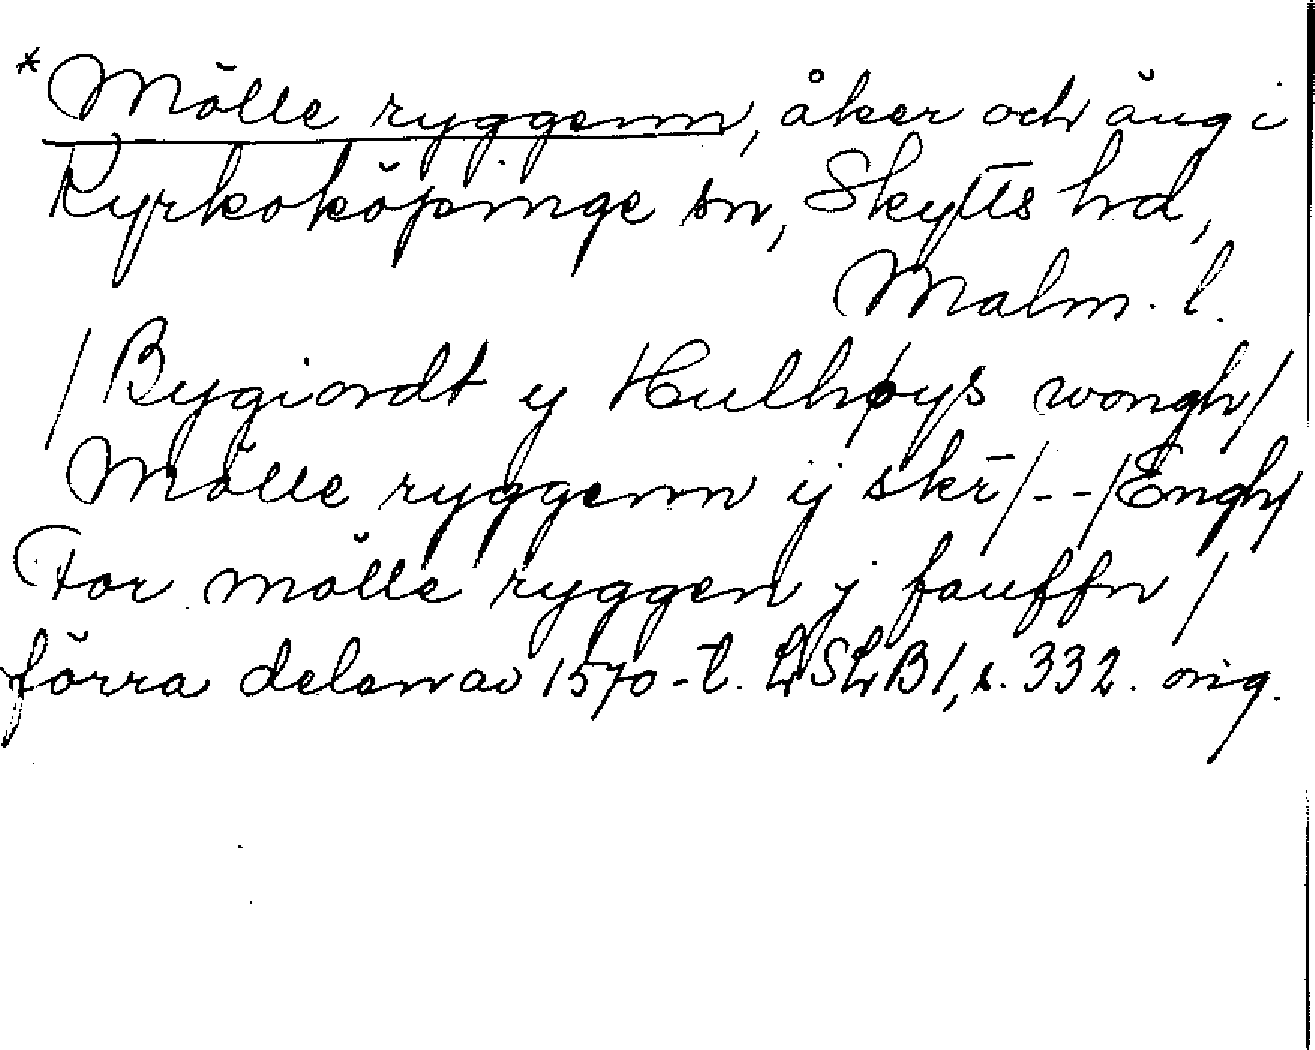 * Mölle ryggenn, åker och äng i
Kyrkoköpinge sn, Skytts hd,
Malm. l.
/Bygiordt y Hulhøys wongh/
Mölle ryggenn ij skr̄/--/Engh/
For mölle ryggen j fauffn/
förra delen av 1570-t. LSLB1, s. 332. orig.